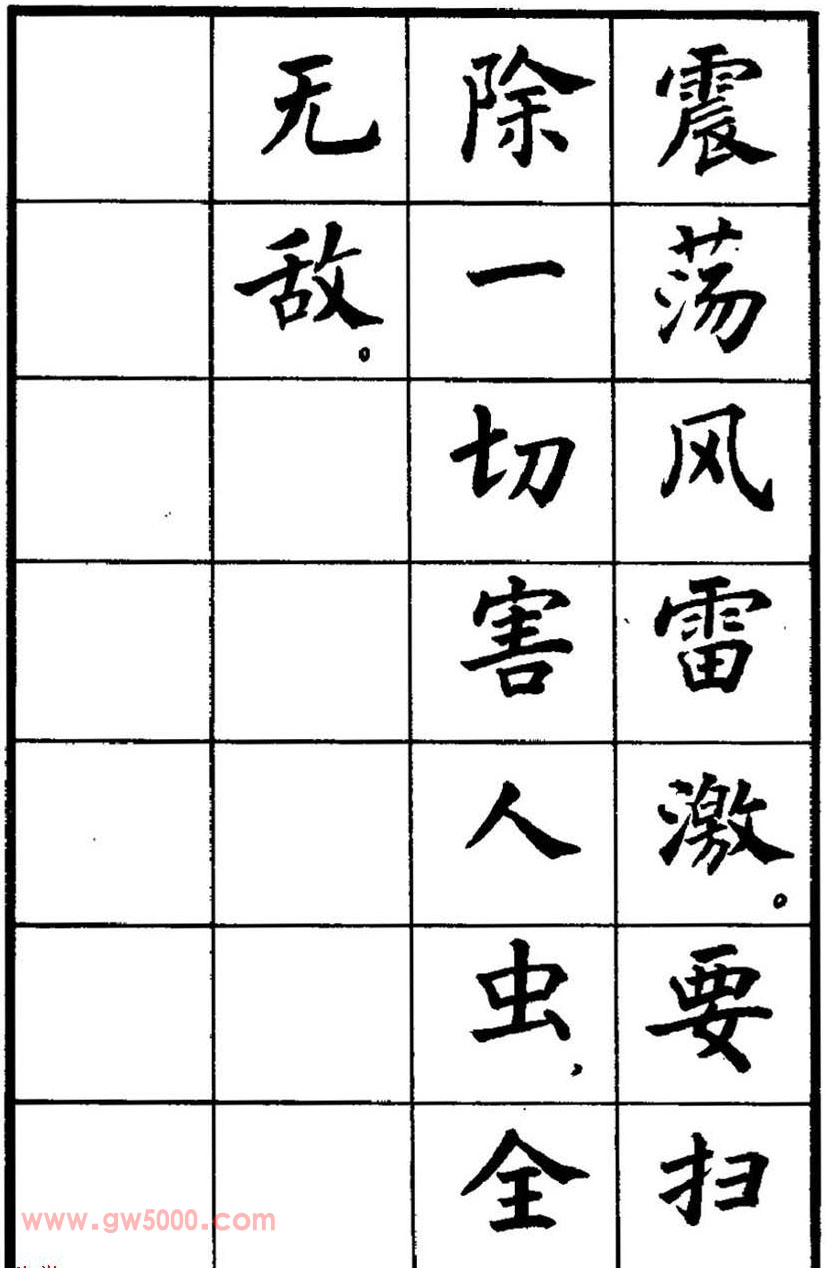 震荡风雷激。要扫
除一切害人虫，全
无敌。
www.gw5000.com